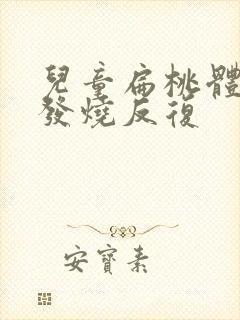 兒童扁桃體
發燒反復
安寶素